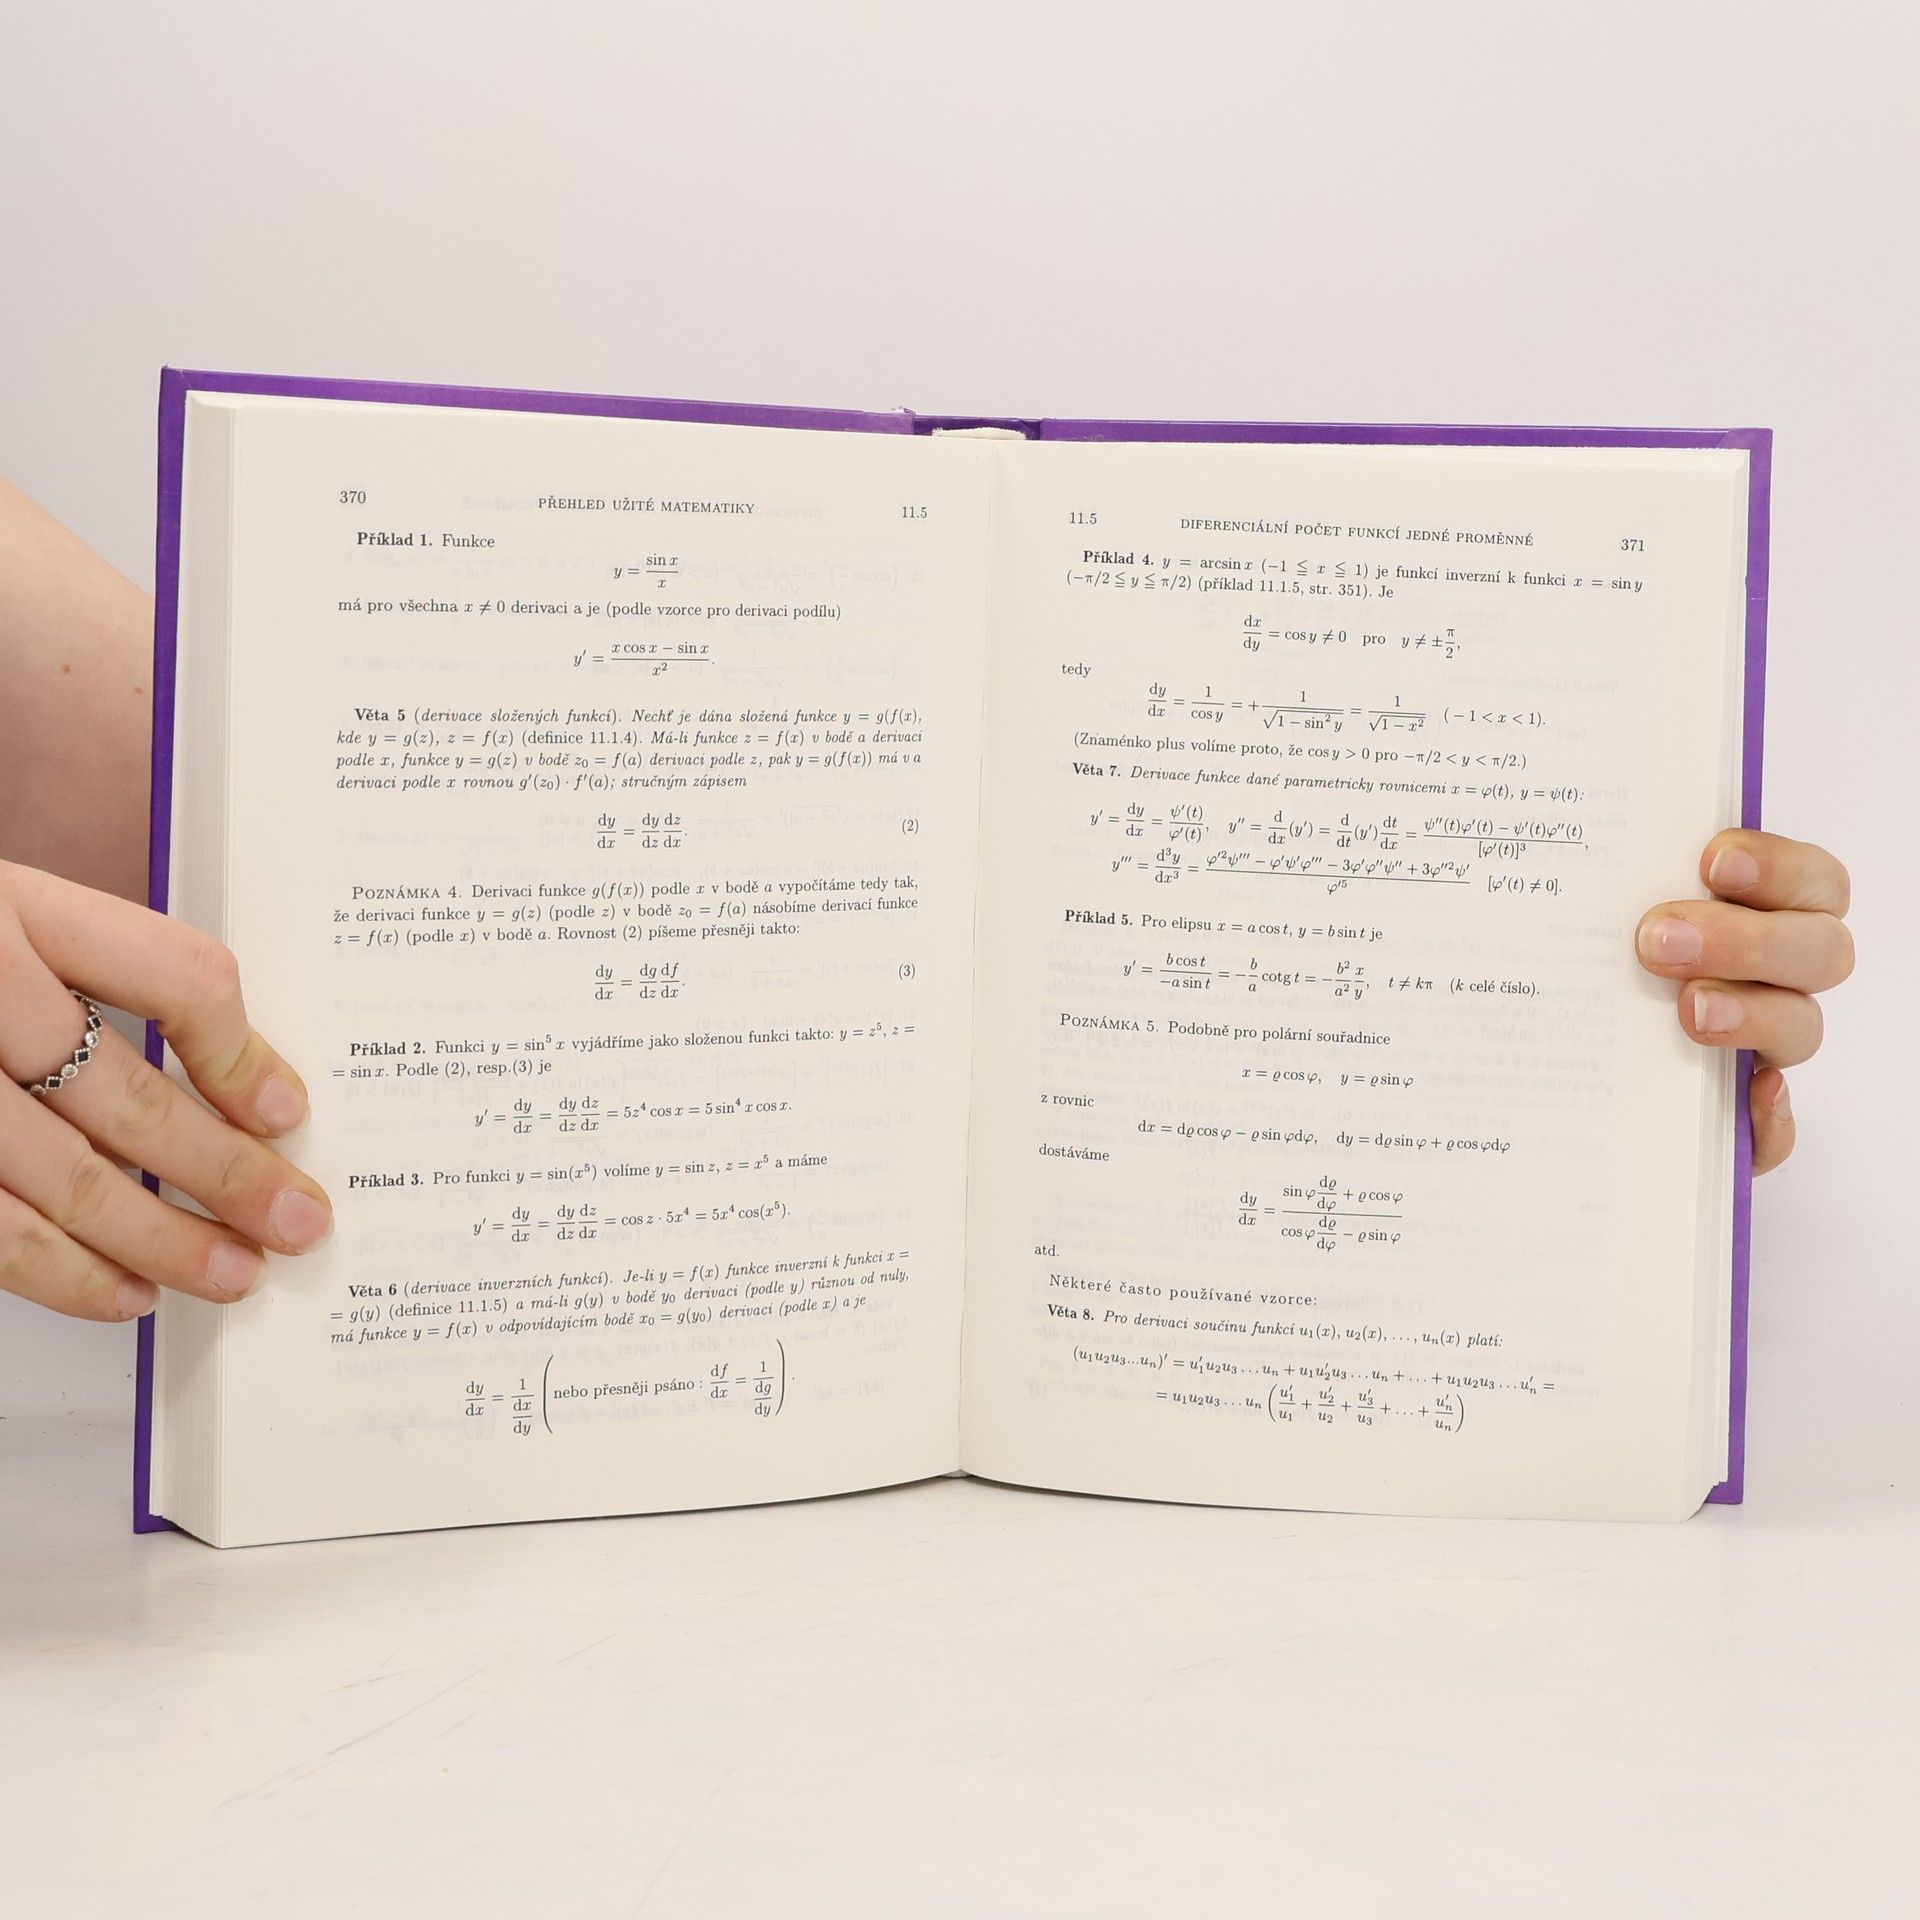 370 PŘEHLED UŽITÉ MATEMATIKY 11.5
Příklad 1. Funkce
y = sin x / x
má pro všechna x ≠ 0 derivaci a je (podle vzorce pro derivaci podílu)
y′ = (x cos x − sin x) / x².
Věta 5 (derivace složených funkcí). Nechť je dána složená funkce y = g(f(x),
kde y = g(z), z = f(x) (definice 11.1.4). Má-li funkce z = f(x) v bodě a derivaci
podle x, funkce y = g(z) v bodě z₀ = f(a) derivaci podle z, pak y = g(f(x)) má v a
derivaci podle x rovnou g′(z₀) · f′(a); stručným zápisem
dy/dx = dy/dz dz/dx. (2)
POZNÁMKA 4. Derivaci funkce g(f(x)) podle x v bodě a vypočítáme tedy tak,
že derivaci funkce y = g(z) (podle z) v bodě z₀ = f(a) násobíme derivací funkce
z = f(x) (podle x) v bodě a. Rovnost (2) píšeme přesněji takto:
dy/dx = dg/dz df/dx. (3)
Příklad 2. Funkci y = sin⁵ x vyjádříme jako složenou funkci takto: y = z⁵, z =
= sin x. Podle (2), resp.(3) je
y′ = dy/dx = dy/dz dz/dx = 5z⁴ cos x = 5 sin⁴ x cos x.
Příklad 3. Pro funkci y = sin(x⁵) volíme y = sin z, z = x⁵ a máme
y′ = dy/dx = dy/dz dz/dx = cos z · 5x⁴ = 5x⁴ cos(x⁵).
Věta 6 (derivace inverzních funkcí). Je-li y = f(x) funkce inverzní k funkci x =
= g(y) (definice 11.1.5) a má-li g(y) v bodě y₀ derivaci (podle y) různou od nuly,
má funkce y = f(x) v odpovídajícím bodě x₀ = g(y₀) derivaci (podle x) a je
dy/dx = 1/(dx/dy) (nebo přesněji psáno : df/dx = 1/(dg/dy)).
11.5 DIFERENCIÁLNÍ POČET FUNKCÍ JEDNÉ PROMĚNNÉ 371
Příklad 4. y = arcsin x (−1 ≦ x ≦ 1) je funkcí inverzní k funkci x = sin y
(−π/2 ≦ y ≦ π/2) (příklad 11.1.5, str. 351). Je
dx/dy = cos y ≠ 0 pro y ≠ ±π/2,
tedy
dy/dx = 1/cos y = + 1/√(1 − sin² y) = 1/√(1 − x²) (−1 < x < 1).
(Znaménko plus volíme proto, že cos y > 0 pro −π/2 < y < π/2.)
Věta 7. Derivace funkce dané parametricky rovnicemi x = φ(t), y = ψ(t):
y′ = dy/dx = ψ′(t)/φ′(t), y″ = d/dx (y′) = d/dt (y′) dt/dx = (ψ″(t)φ′(t) − ψ′(t)φ″(t))/[φ′(t)]³,
y‴ = d³y/dx³ = (φ′²ψ‴ − φ′ψ′φ‴ − 3φ′φ″ψ″ + 3φ″²ψ′)/φ′⁵ [φ′(t) ≠ 0].
Příklad 5. Pro elipsu x = a cos t, y = b sin t je
y′ = b cos t/(−a sin t) = −b/a cotg t = −b²/a² x/y, t ≠ kπ (k celé číslo).
POZNÁMKA 5. Podobně pro polární souřadnice
x = ϱ cos φ, y = ϱ sin φ
z rovnic
dx = dϱ cos φ − ϱ sin φdφ, dy = dϱ sin φ + ϱ cos φdφ
dostáváme
dy/dx = (sin φ dϱ/dφ + ϱ cos φ)/(cos φ dϱ/dφ − ϱ sin φ)
atd.
Některé často používané vzorce:
Věta 8. Pro derivaci součinu funkcí u₁(x), u₂(x), ..., uₙ(x) platí:
(u₁u₂u₃...uₙ)′ = u₁′u₂u₃...uₙ + u₁u₂′u₃...uₙ + ... + u₁u₂u₃...uₙ′ =
= u₁u₂u₃...uₙ (u₁′/u₁ + u₂′/u₂ + u₃′/u₃ + ... + uₙ′/uₙ)